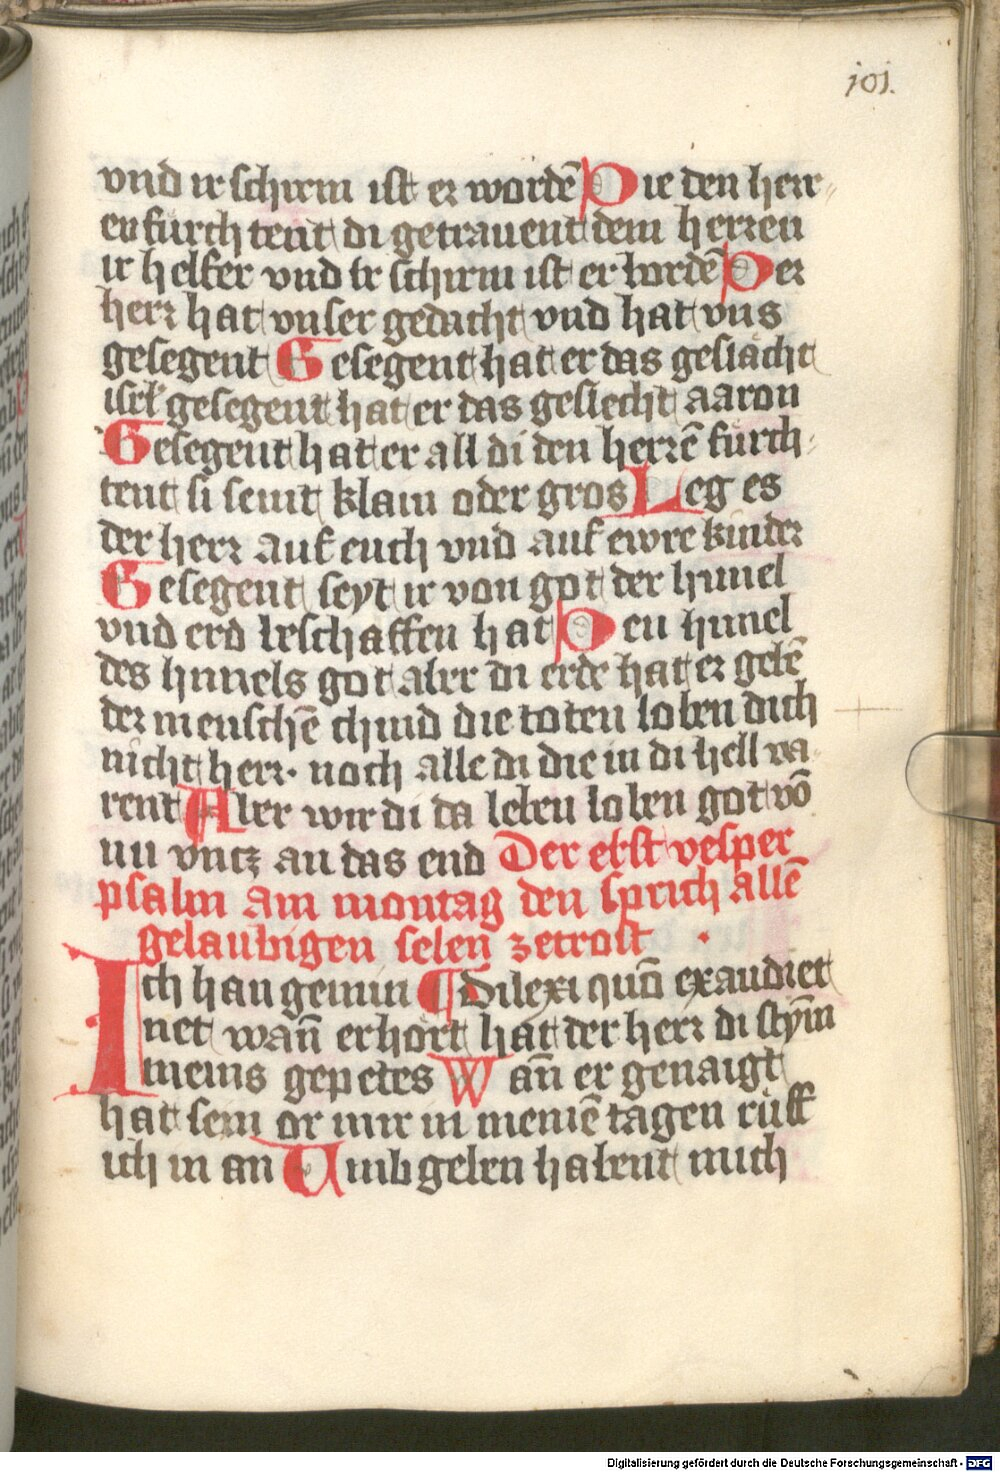 101.
vnd ir schirm ist er wordē Die den herr-
en fürchtent di getrauent dem herren
ir helfer vnd ir schirm ist er wordē Der
herr hat vnser gedacht vnd hat vns
gesegent Gesegent hat er das geslächt
isrl gesegent hat er das geslecht aaron
Gesegent hat er all di den herrē fürch-
tent si seint klain oder gros Leg es
der herr auf euch vnd auf ewre kinder
Gesegent seyt ir von got der himel
vnd erd beschaffen hat Den himel
des himels got aber di erde hat er gebē
der menschē chind die toten loben dich
nicht herr. noch alle di die in di hell va-
rent Aber wir di da leben loben got vō
nu vntz an das end Der erst vesper
psalm am montag den sprich allē
gelaubigen selen zetrost .
Ich han gemin ¶ Dilexi quō exaudiet
net wañ erhört hat der herr di stym
meins gepetes Wañ er genaigt
hat sein or mir in meinē tagen rüff
ich in an Umbgeben habent mich
Digitalisierung gefördert durch die Deutsche Forschungsgemeinschaft - DFG